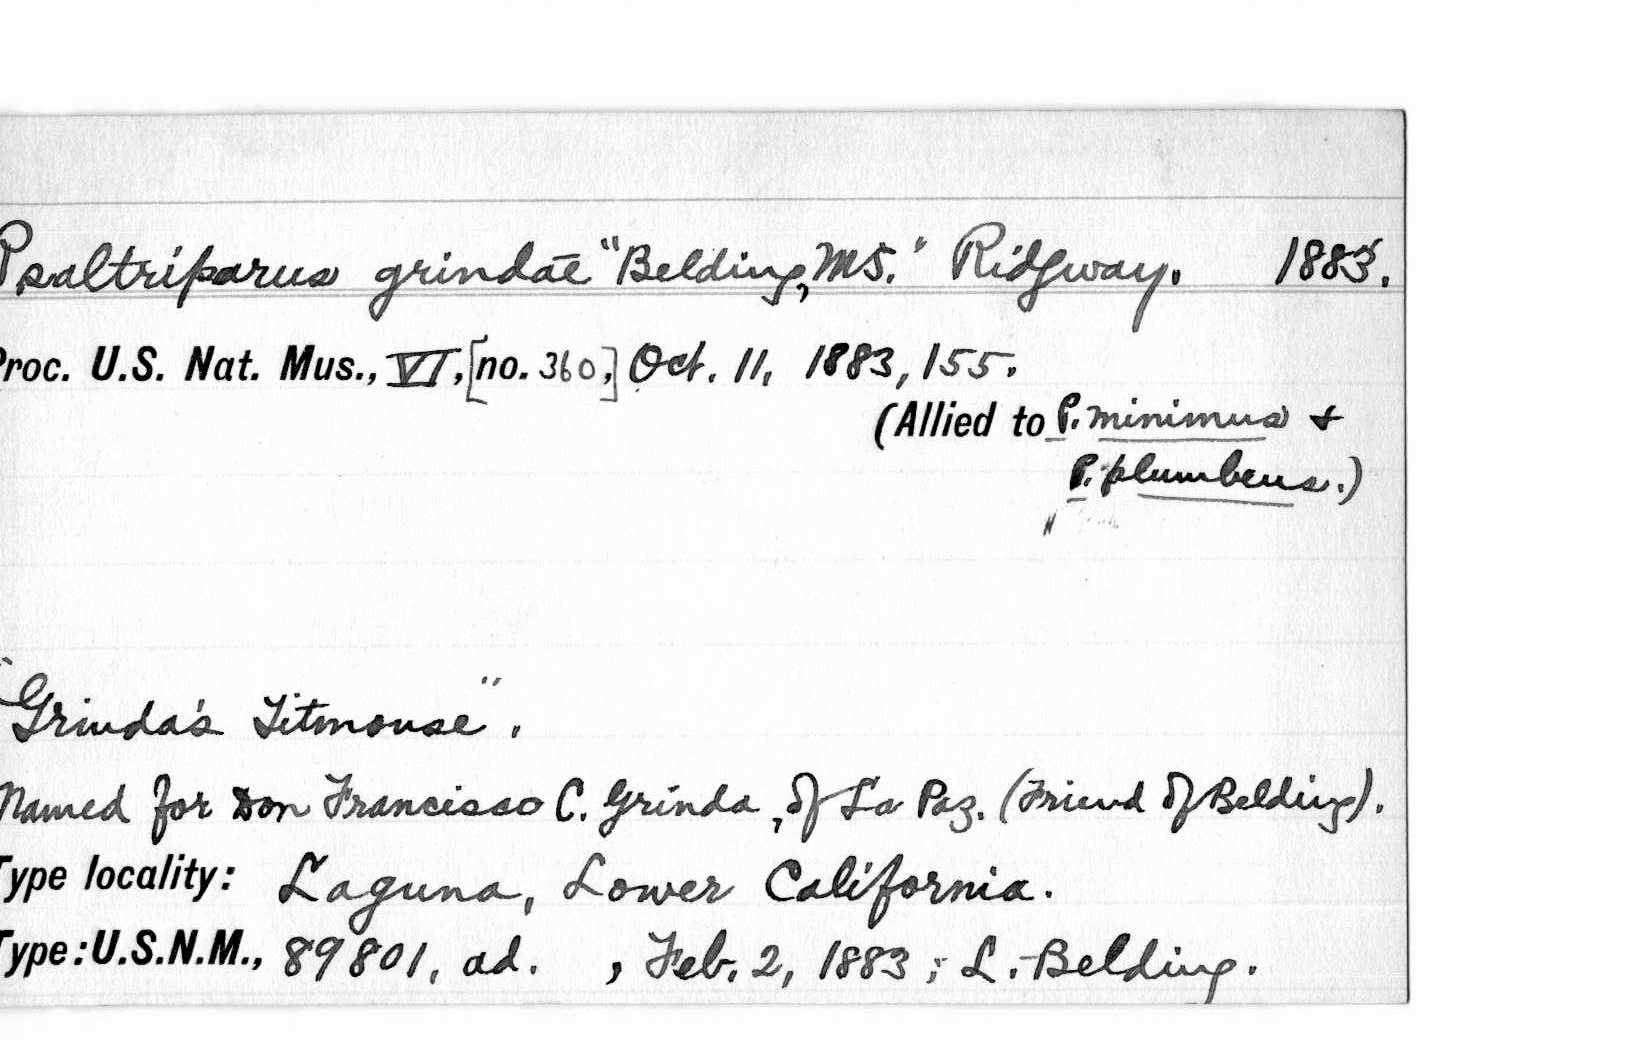 Psaltriparus grindae "Belding, MS." Ridgway. 1883.
Proc. U.S. Nat. Mus., VI, [no. 360,] Oct. 11, 1883, 155.
(Allied to P. minimus &
P. plumbeus.)
"Grinda's Titmouse".
Named for Don Francisco C. Grinda, of La Paz. (Friend of Belding).
Type locality: Laguna, Lower California.
Type: U.S.N.M., 89801, ad. , Feb. 2, 1883; L. Belding.